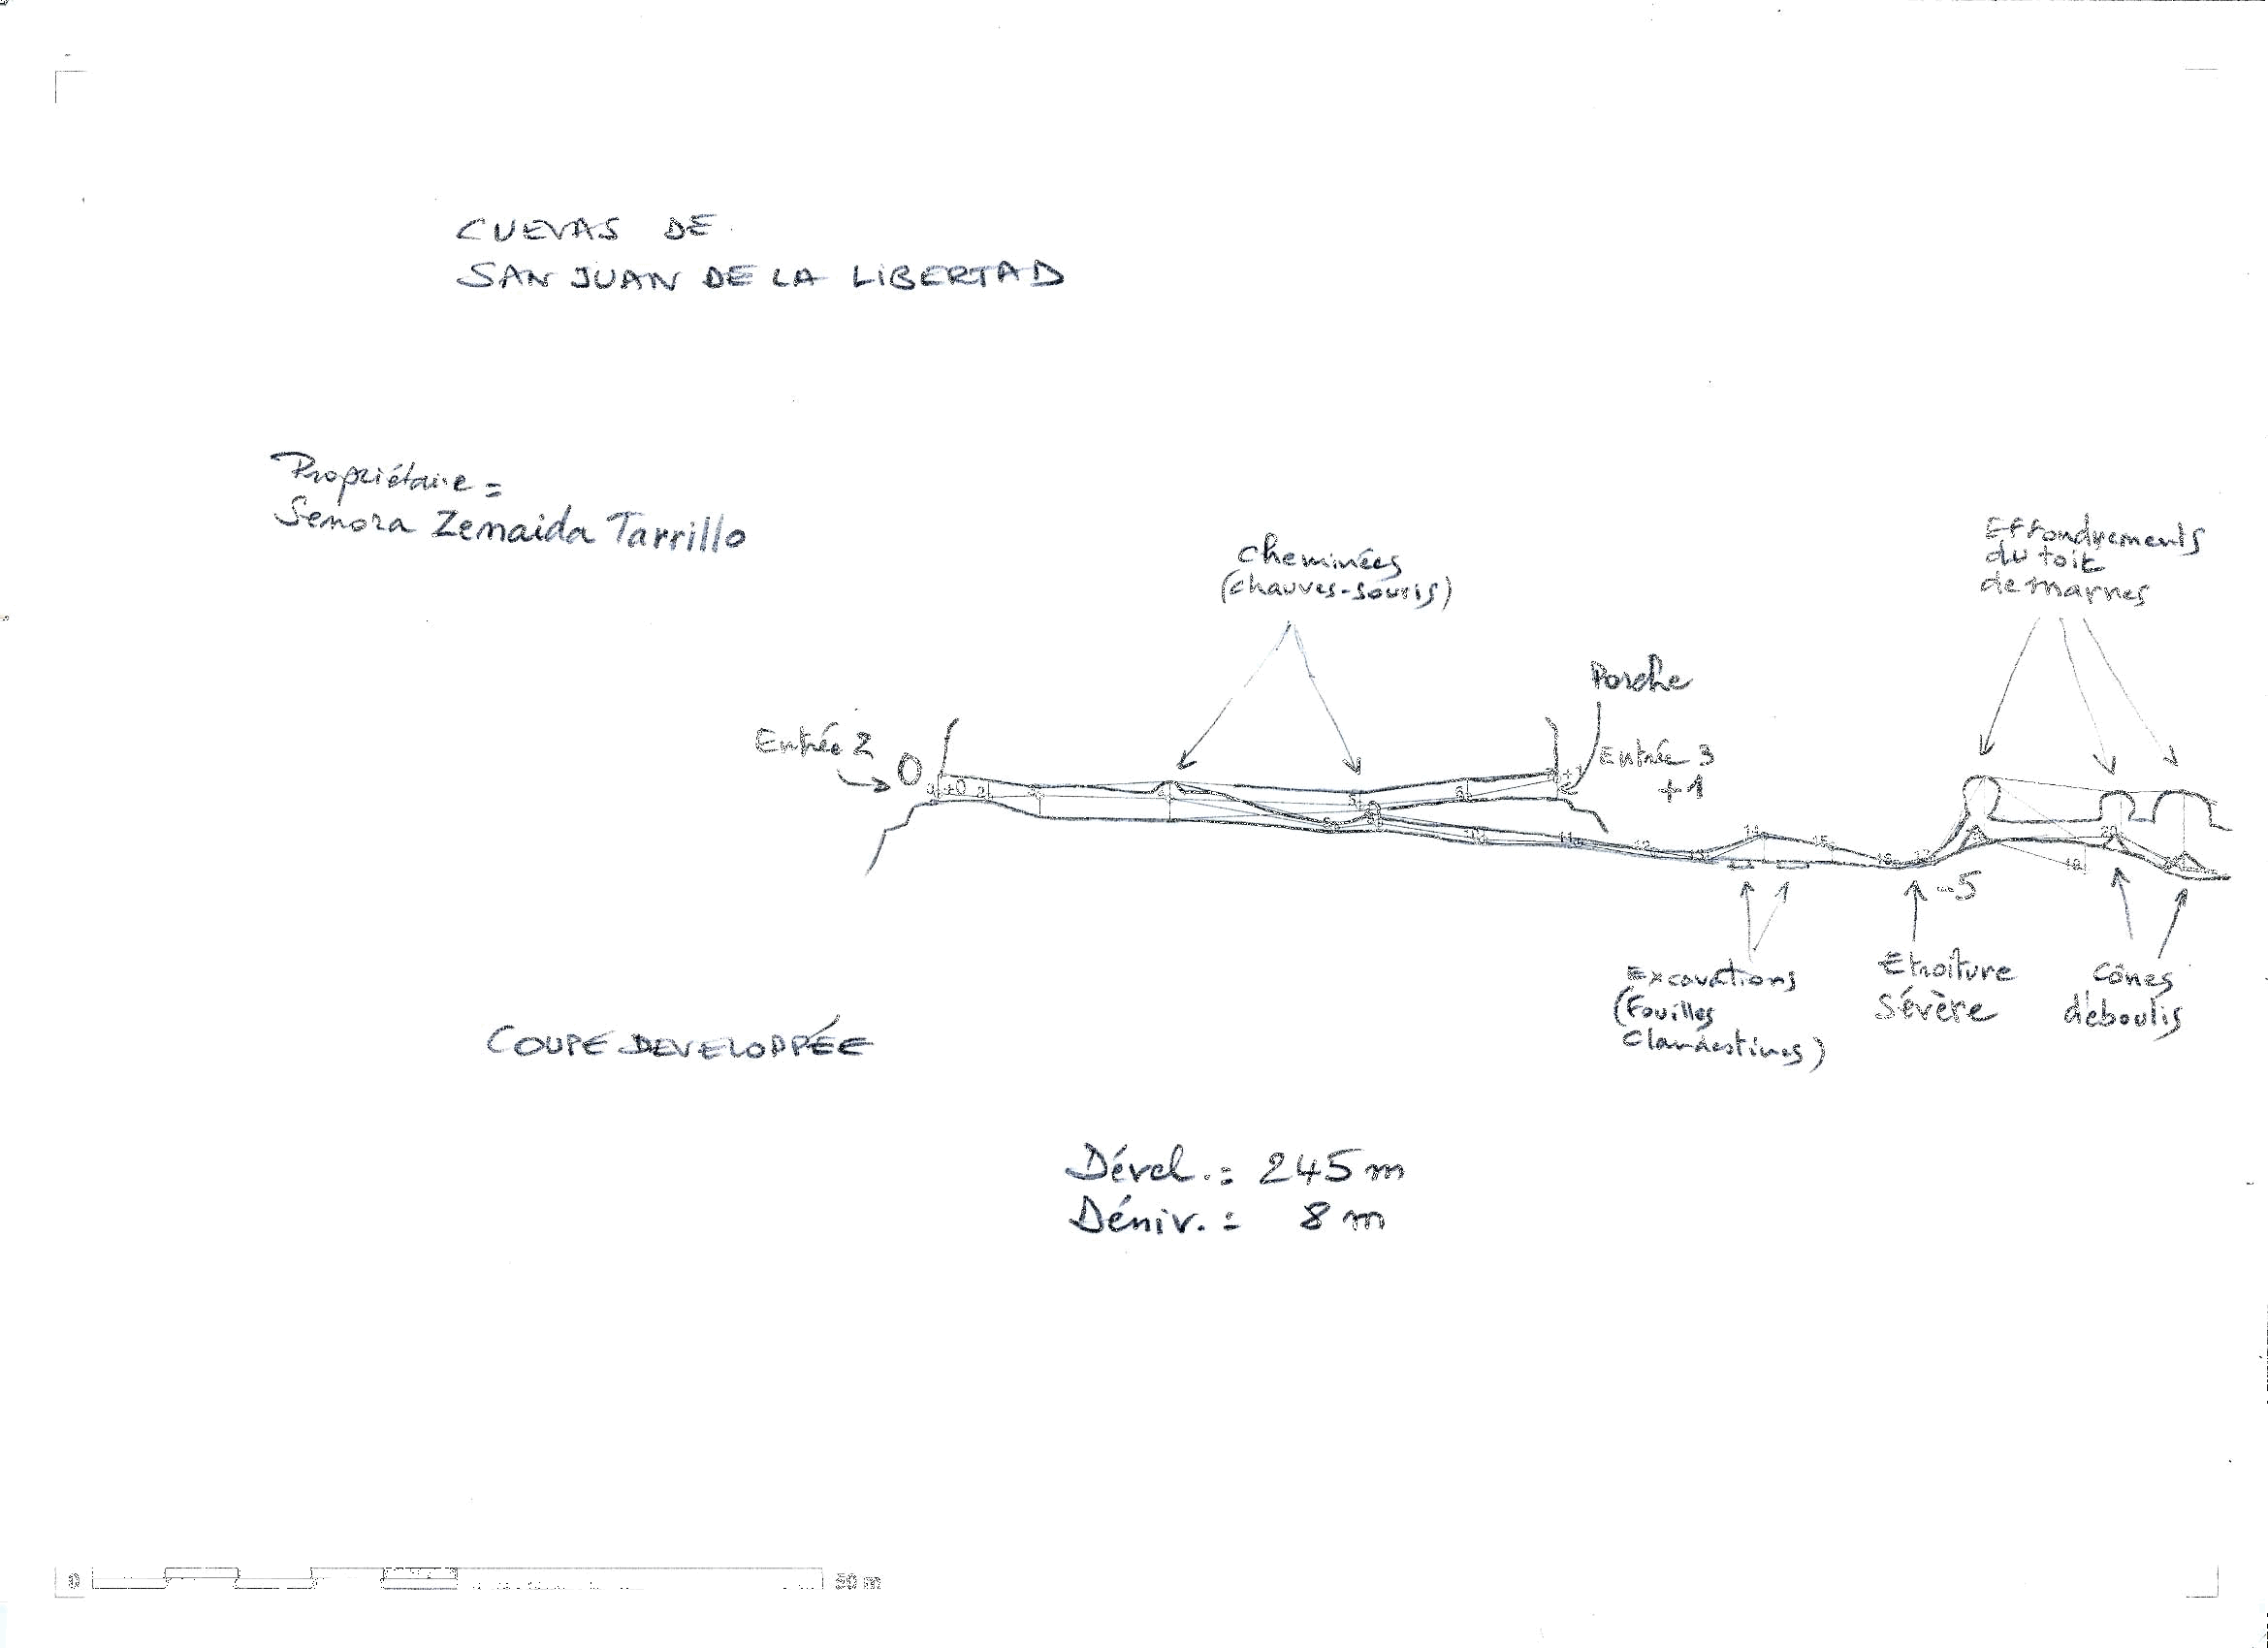 CUEVAS DE
SAN JUAN DE LA LIBERTAD
Propriétaire =
Senora Zemaida Tarrillo
Cheminées
(chauves-souris)
Effondrements
du toit
de marnes
Porche
Entrée 2
0
Entrée 3
+1
+0
2
+1
11
12
14
15
16
18
20
-5
Excavations
(Fouilles
Clandestines)
Etroiture
Sévère
Cônes
d'éboulis
COUPE DEVELOPPÉE
Dével. = 245 m
Déniv. = 8 m
0
50 m